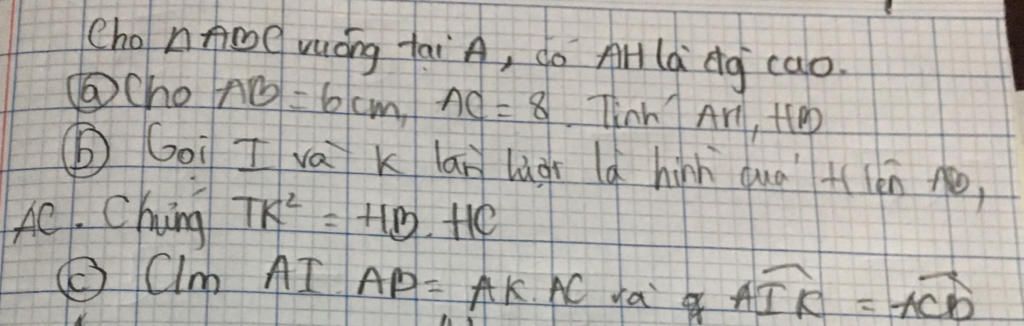 Cho △ABC vuông tại A, có AH là đg cao.
ⓐ Cho AB = 6cm, AC = 8. Tính AH, HB
ⓑ Gọi I và K lần lượt là hình của H lên AB,
AC. Chứng IK² = HB. HC
ⓒ C/m AI. AB = AK. AC và AIK = ACB